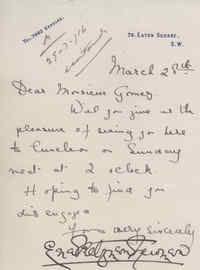 75, EATON SQUARE,
S.W.
March 28th
Dear Monsieur Gomez
Will you give us the
pleasure of seeing you here
to luncheon on Sunday
next at 2 oclock.
Hoping to find you
disengaged
Yours very sincerely